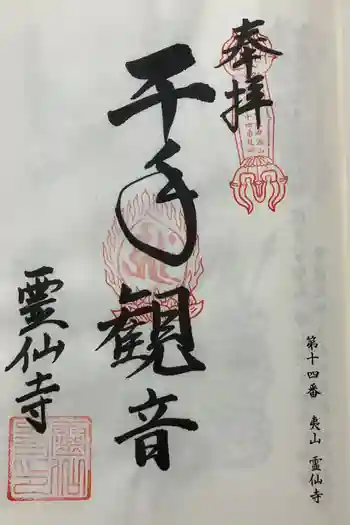 奉拝
千手觀音
霊仙寺
第十四番 夷山 霊仙寺